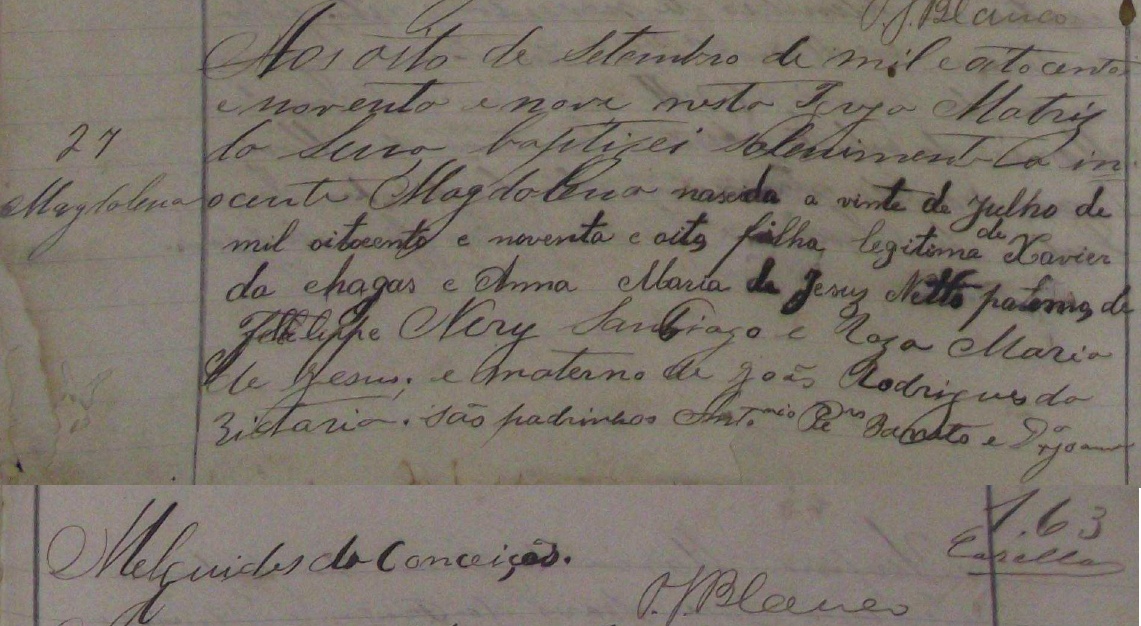 P. J. Blanco
Aos oito de Setembro de mil e oitocentos
27
e noventa e nove nesta Igreja Matriz
da Serra baptizei solenimente a in
Magdalena
ocente Magdalena nascida a vinte de Julho de
mil oitocento e noventa e oito filha legitima de Xavier
da chagas e Anna Maria de Jesus Netto paterno de
Felelippe Nery Santiago e Roza Maria
de Jesus; e materno de João Rodrigues da
são padrinhos Antonio Barreto e D.ª Joanna
Melquides da Conceição.
1.63
Capella
P. J. Blanco